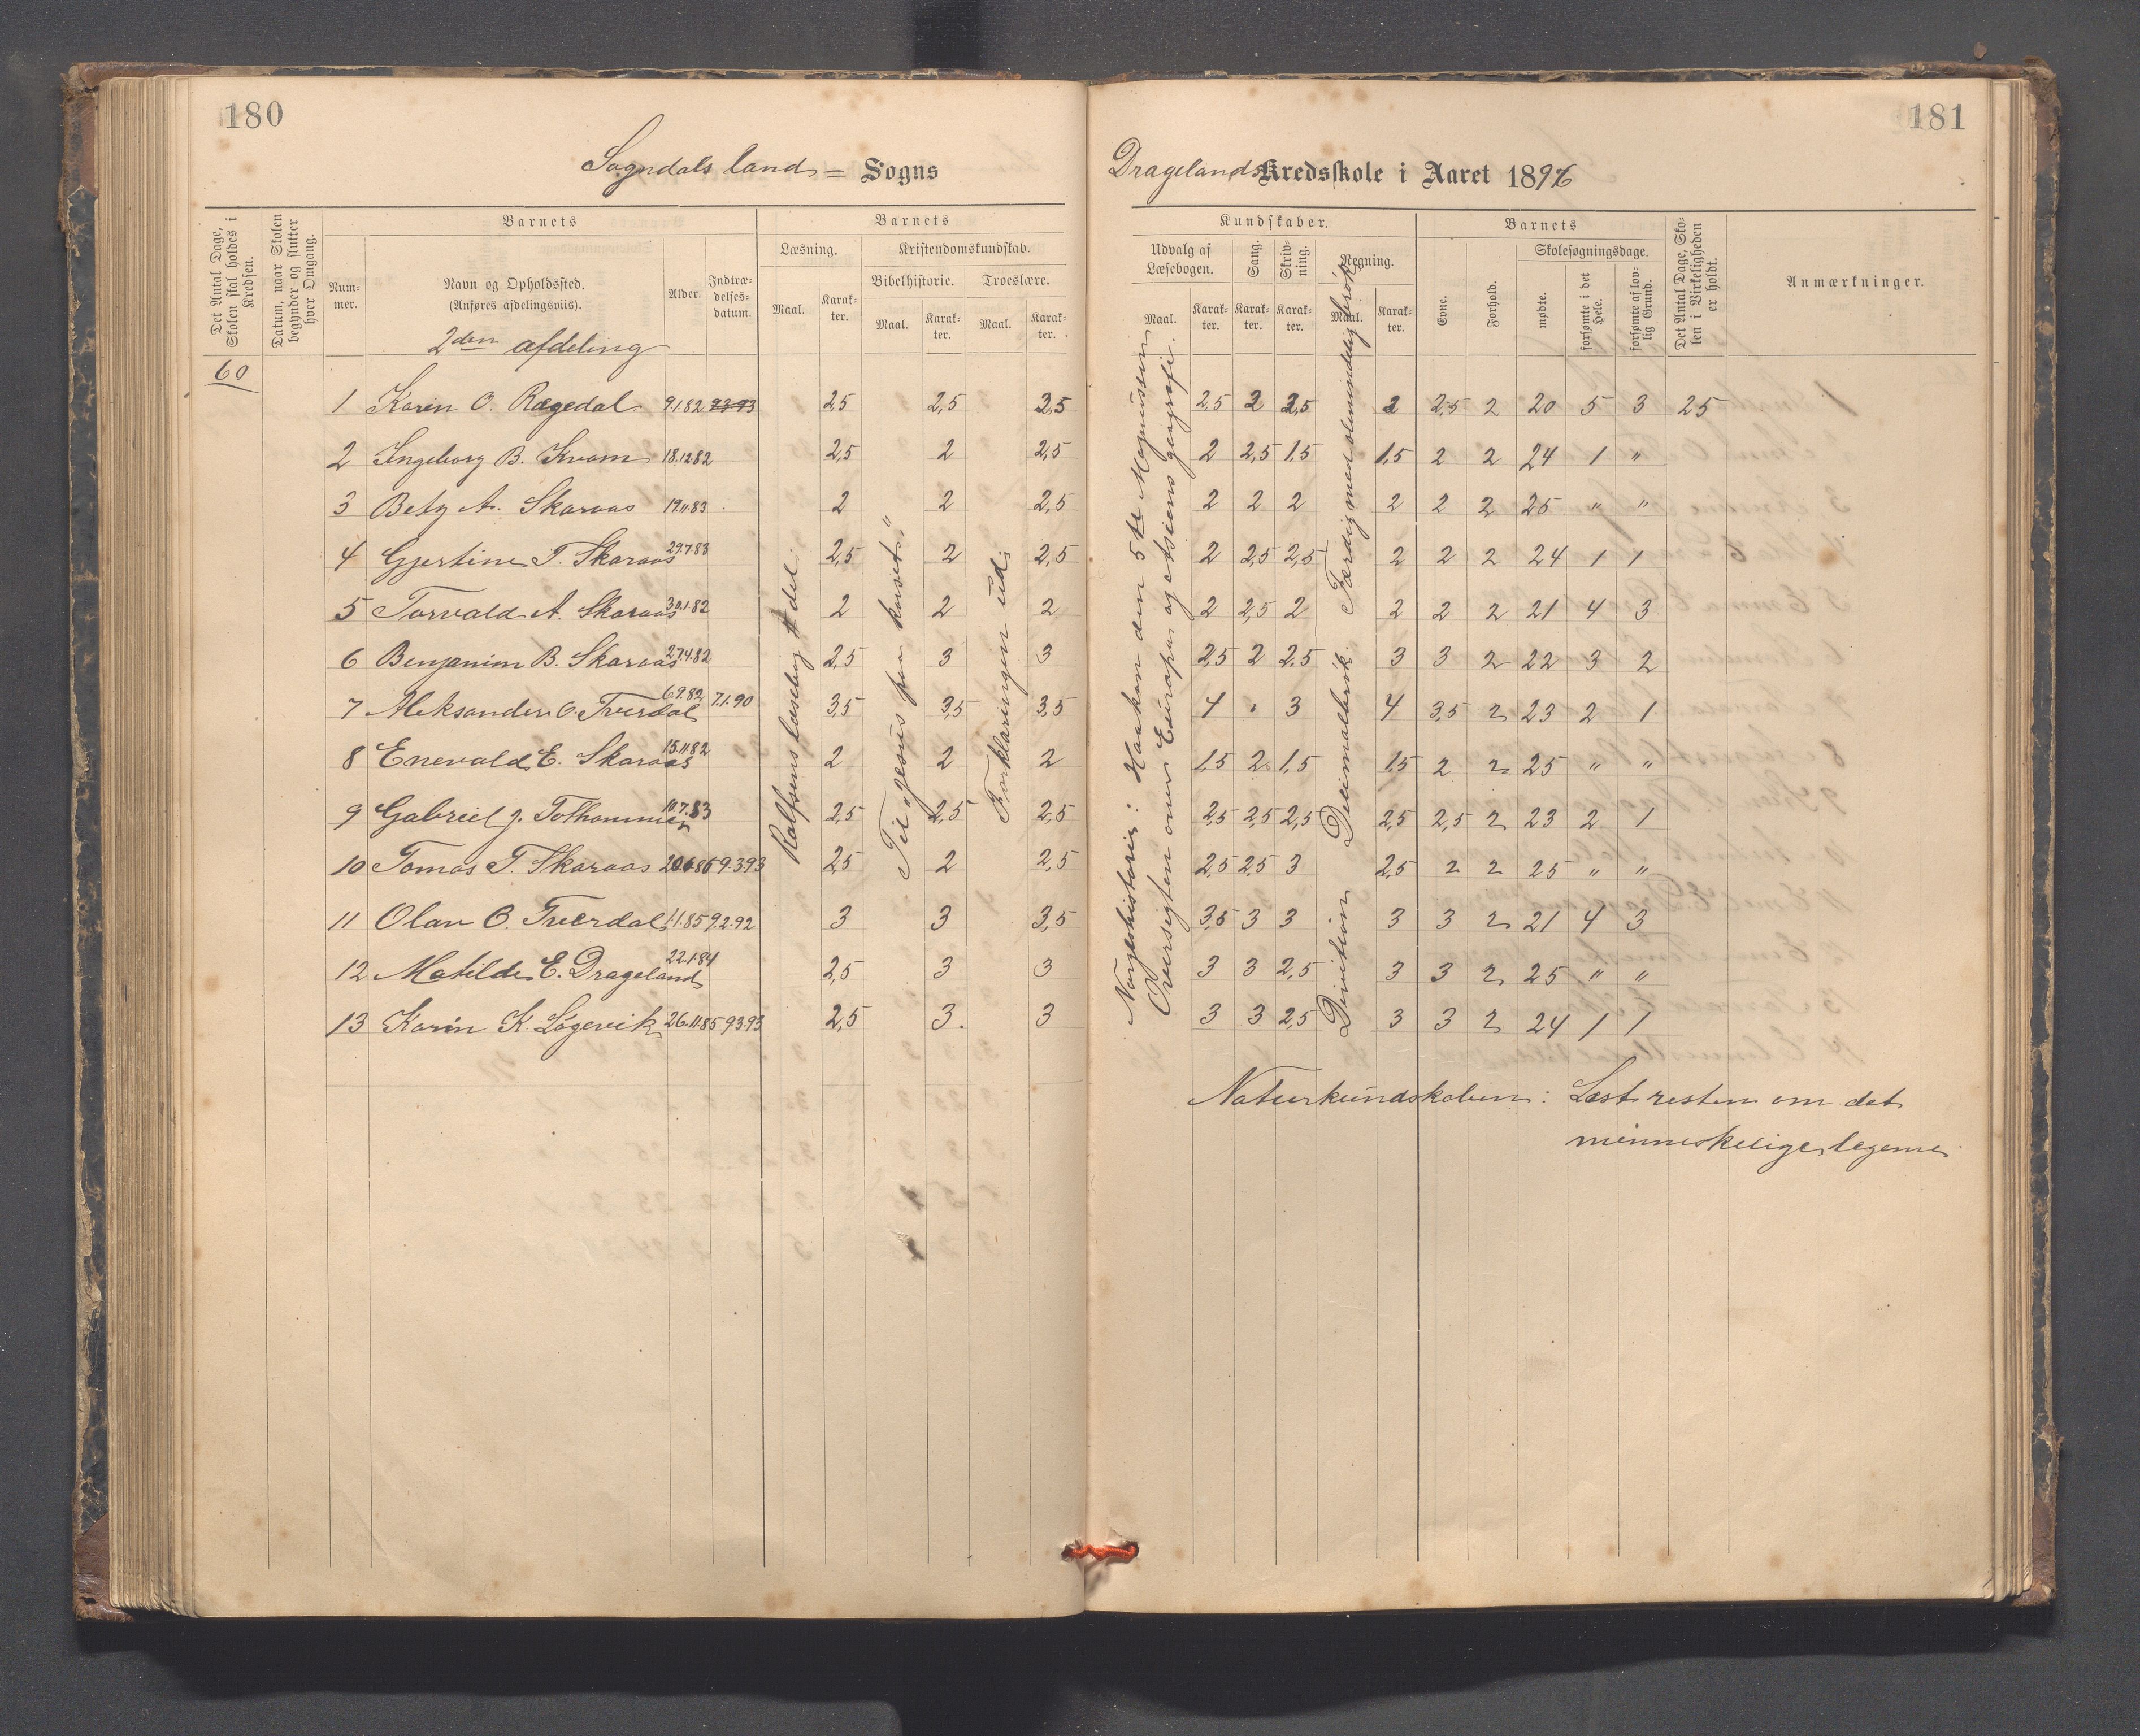 180
Sogndals land = Sogns
Det Antal Dage, Skolen skal holdes i Kredsen.
Datum, naar Skolen begynder og slutter hver Omgang.
Barnets
Nummer.
Navn og Opholdssted.
(Anføres afdelingsviis).
Alder.
Indtrædelsesdatum.
Barnets
Læsning.
Maal.
Karakter.
Kristendomskundskab.
Bibelhistorie.
Troeslære.
Maal.
Karakter.
Maal.
Karakter.
2den afdeling
60
1 Karen O. Rægedal 9.1.82 9.3.93 2,5 2,5 2,5
2 Ingeborg B. Kvam 18.12.82 2,5 2 2,5
3 Bety A. Skaraas 19.11.83 2 2 2,5
4 Gjertine T. Skaraas 29.7.83 2,5 2 2,5
5 Torvald A. Skaraas 30.1.82 2 2 2
6 Benjamin B. Skaraas 27.4.82 2,5 3 3
7 Aleksander O. Tverdal 6.9.82 7.1.90 3,5 3,5 3,5
8 Enevald E. Skaraas 15.11.82 2 2 2
9 Gabriel J. Tothammer 10.7.83 2,5 2,5 2,5
10 Tomas T. Skaraas 20.6.86 9.3.93 2,5 2 2,5
11 Olav O. Tverdal 1.1.85 9.2.92 3 3 3,5
12 Matilde E. Drageland 22.1.84 2,5 3 3
13 Karin K. Løgevik 26.11.85 9.3.93 2,5 3. 3
Rolfsens læsebog # del.
Til „Jesus paa korset"
Forklaringen ud
181
Dragelands Kredsskole i Aaret 1896
Kundskaber.
Udvalg af Læsebogen.
Maal.
Karakter.
Sang.
Karakter.
Skrivning.
Karakter.
Regning.
Maal.
Karakter.
Barnets
Evne.
Forhold.
Skolesøgningsdage.
mødte.
forsømte i det Hele.
forsømte af lovlig Grund.
Det Antal Dage, Skolen i Virkeligheden er holdt.
Anmærkninger.
2,5 2 2,5 2 2,5 2 20 5 3 25
2 2,5 1,5 1,5 2 2 24 1 "
2 2 2 2 2 2 25 " "
2 2,5 2,5 2 2 2 24 1 1
2 2,5 2 2 2 2 21 4 3
2,5 2 2,5 3 3 2 22 3 2
4 " 3 4 3,5 2 23 2 1
1,5 2 1,5 1,5 2 2 25 " "
2,5 2,5 2,5 2,5 2,5 2 23 2 1
2,5 2,5 3 2,5 2 2 25 " "
3,5 3 3 3 3 2 21 4 3
3 3 2,5 3 3 2 25 " "
3 3 2,5 3 3 2 24 1 1
Norgeshistorie: Haakon den 5te Magnussen
Oversigten over Europa og Asiens geografi.
Division Decimalbrøk. Færdig med almindelig brøk
Naturkundskaben: Læst resten om det
menneskelige legeme